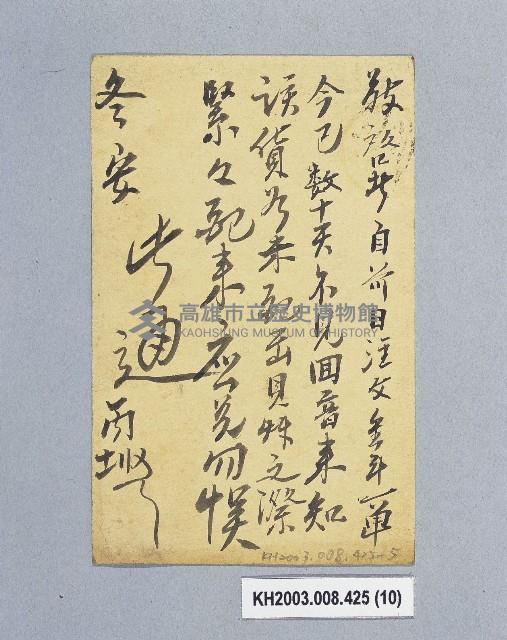 敬啟者自前日注文金斗一單
今已數十天不見回音未知
該貨為未配出見咔之際
緊々配来為兄勿悞
此通
冬安
高雄市立歷史博物館
KAOHSIUNG MUSEUM OF HISTORY
KH2003.008.425-5
KH2003.008.425 (10)